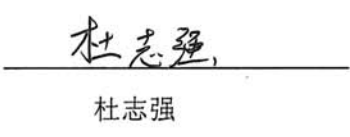 杜志强
杜志强